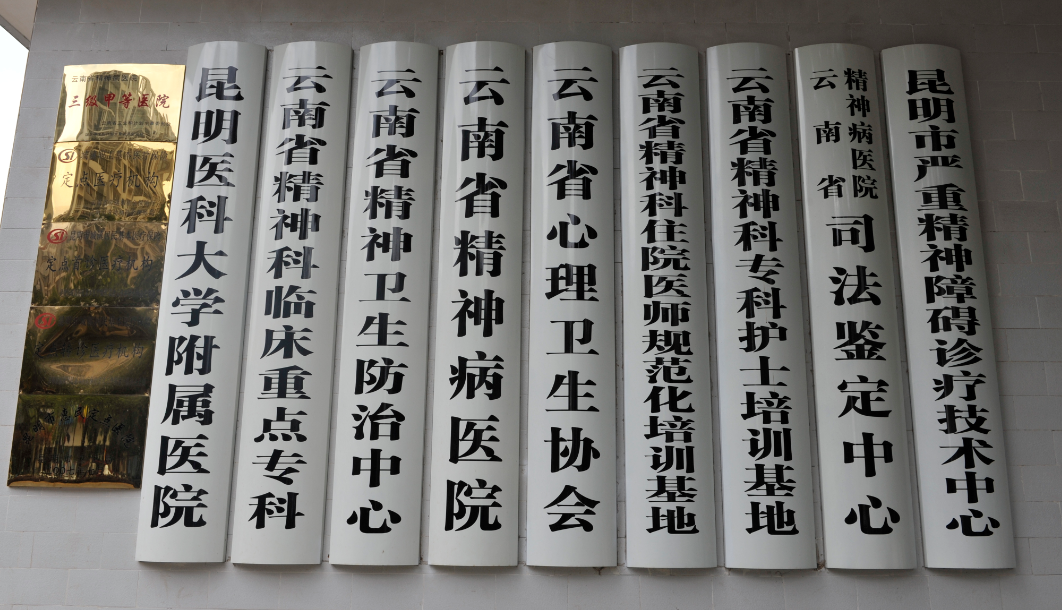 三级甲等医院
定点医疗机构
昆明医科大学附属医院
云南省精神科临床重点专科
云南省精神卫生防治中心
云南省精神病医院
云南省心理卫生协会
云南省精神科住院医师规范化培训基地
云南省精神科专科护士培训基地
云南省
精神病医院
司法鉴定中心
昆明市严重精神障碍诊疗技术中心